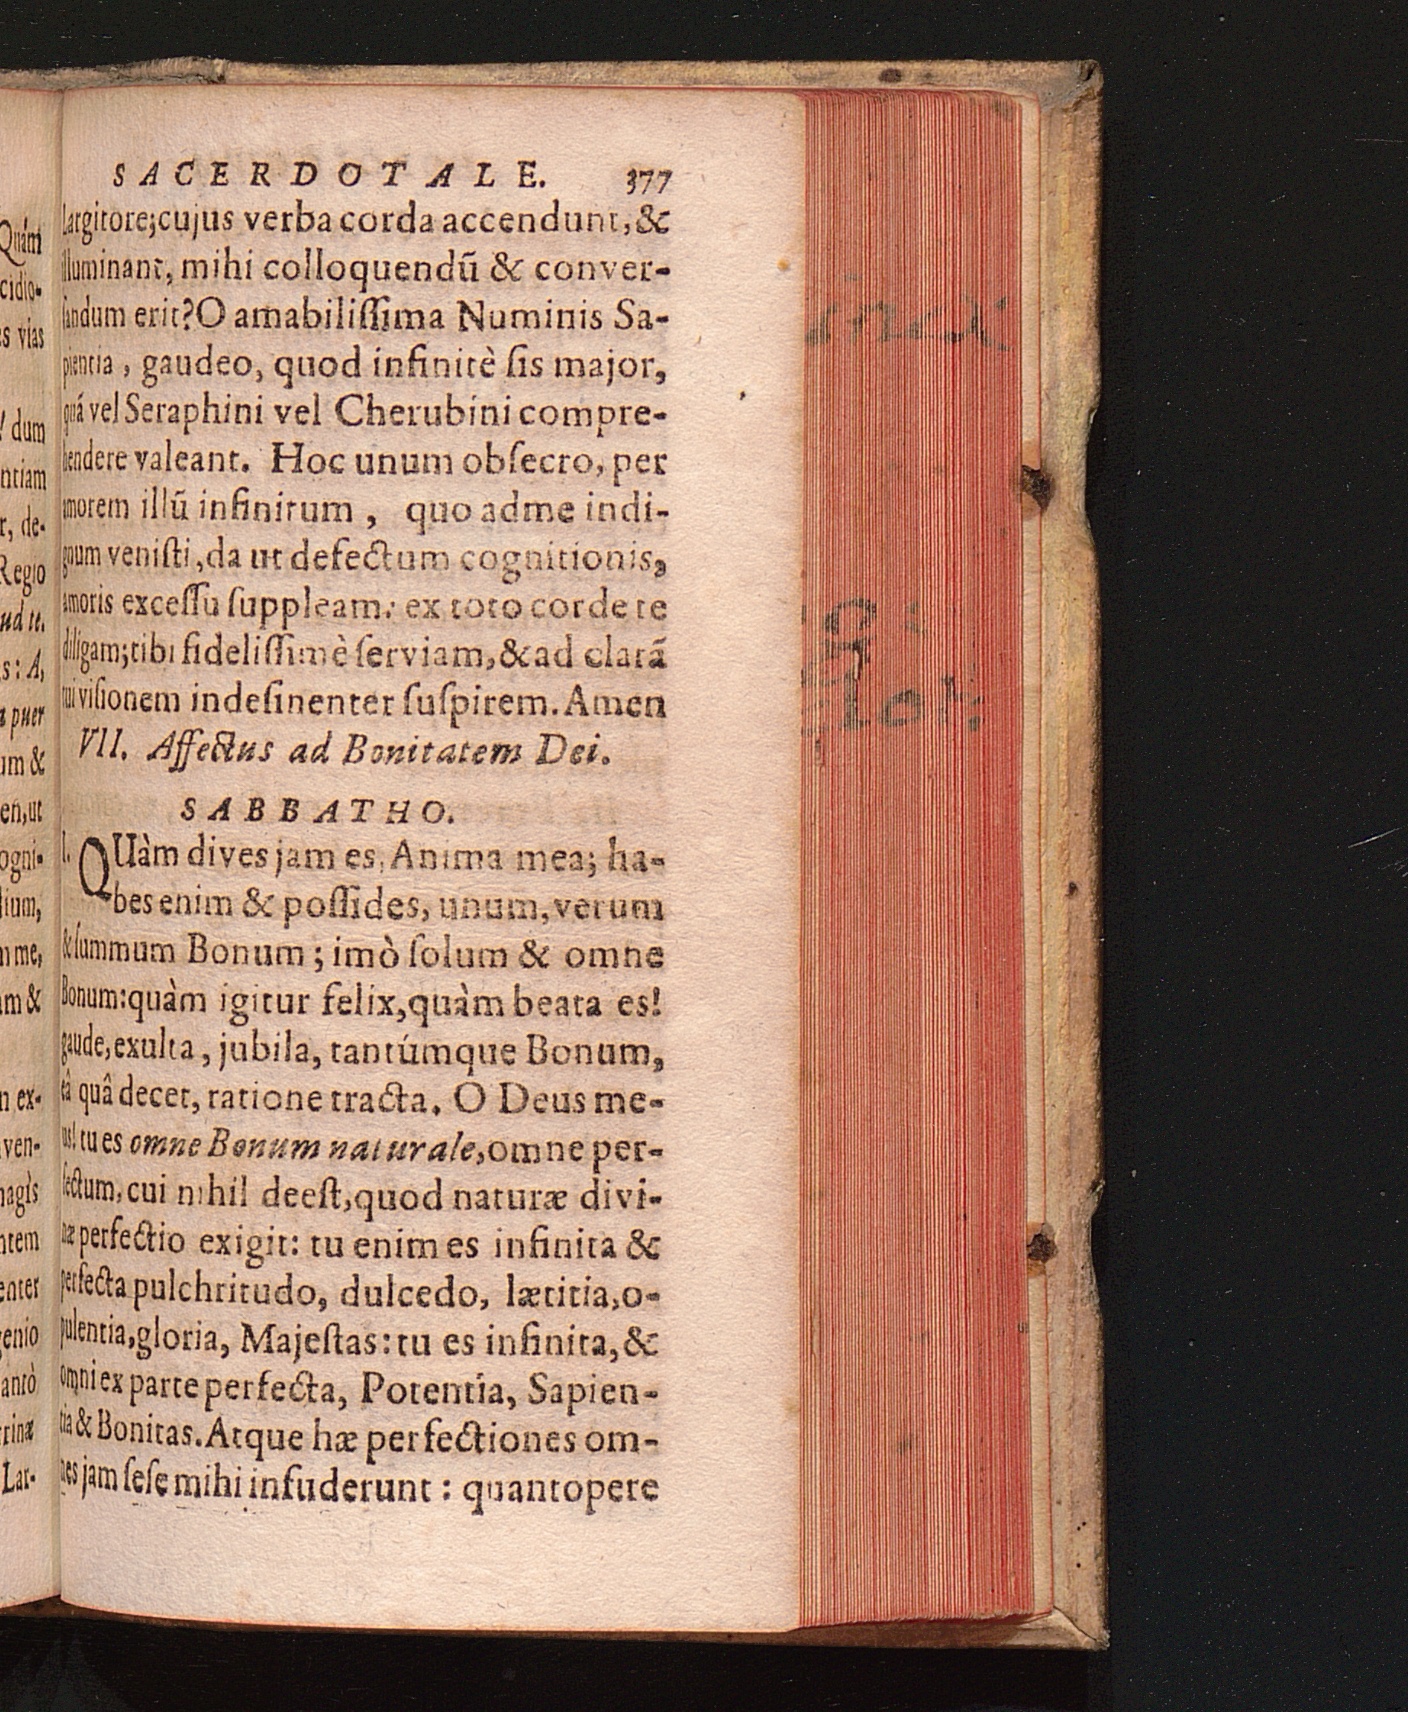 SACERDOTALE. 377
Largitore; cujus verba corda accendunt, &
illuminant, mihi colloquendũ & conver-
ſandum erit? O amabiliſſima Numinis Sa-
pientia, gaudeo, quod infinitè ſis major,
quã vel Seraphini vel Cherubini compre-
hendere valeant. Hoc unum obſecro, per
amorem illũ infinitum, quo ad me indi-
gnum veniſti, da ut defectum cognitionis,
amoris exceſſu ſuppleam: ex toto corde te
diligam; tibi fideliſſimè ſerviam, & ad clarã
tui viſionem indeſinenter ſuſpirem. Amen
VII. Affectus ad Bonitatem Dei.
SABBATHO.
I. QUàm dives jam es, Anima mea; ha-
bes enim & poſſides, unum, verum
& ſummum Bonum; imò ſolum & omne
Bonum: quàm igitur felix, quàm beata es!
gaude, exulta, jubila, tantúmque Bonum,
eâ quâ decet, ratione tracta. O Deus me-
us! tu es omne Bonum naturale, omne per-
fectum, cui nihil deeſt, quod naturæ divi-
næ perfectio exigit: tu enim es infinita &
perfecta pulchritudo, dulcedo, lætitia, o-
pulentia, gloria, Majeſtas: tu es infinita, &
omni ex parte perfecta, Potentia, Sapien-
tia & Bonitas. Atque hæ perfectiones om-
nes jam ſeſe mihi infuderunt: quantopere